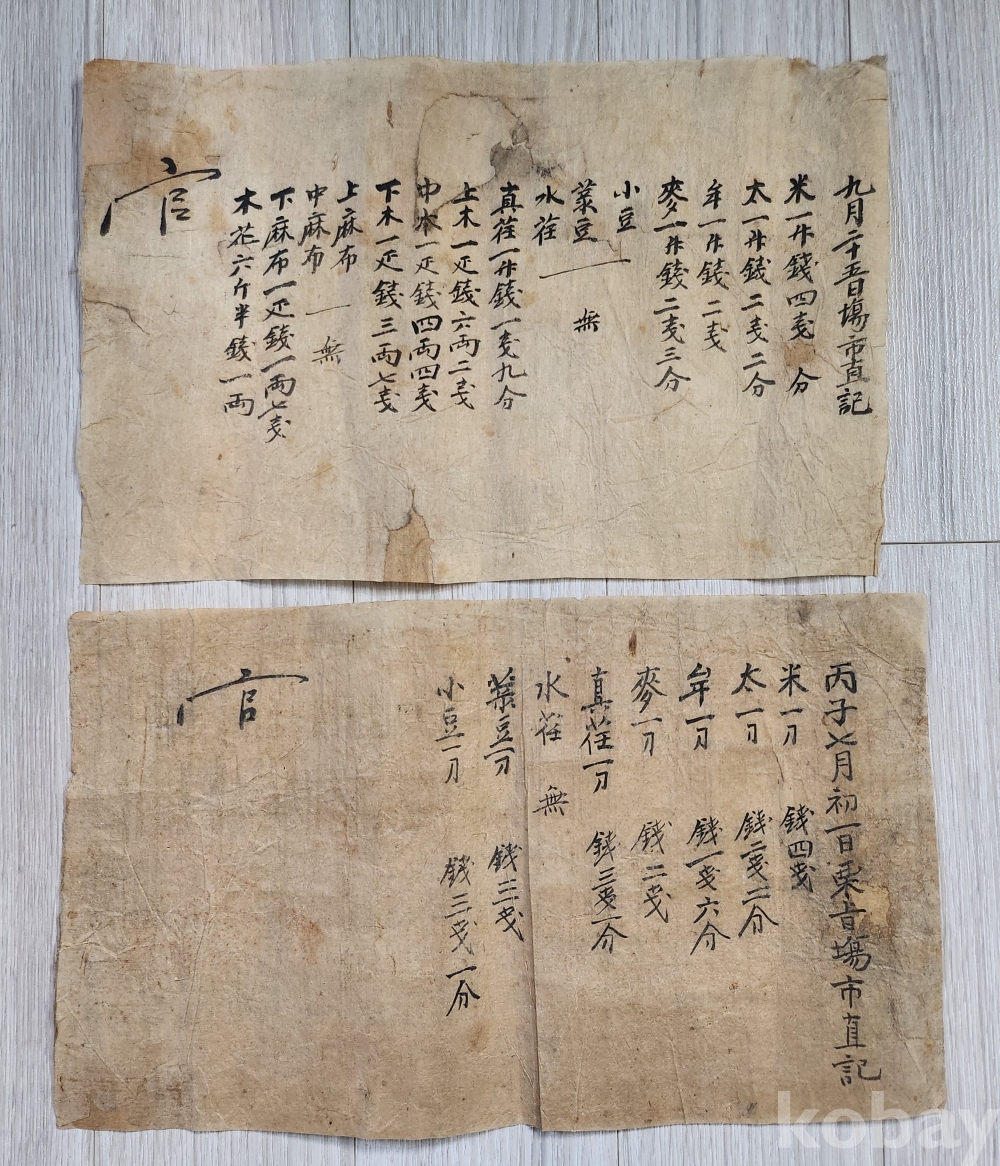 九月二十五日塲市直記
米一升錢四戔 分
太一升錢二戔二分
牟一升錢二戔
麥一升錢二戔三分
小豆
菉豆
水荏 無
真荏一升錢一戔九分
上木一疋錢六兩二戔
中木一疋錢四兩四戔
下木一疋錢三兩七戔
上麻布
中麻布 無
下麻布一疋錢一兩七戔
木花六斤半錢一兩
官
丙子七月初一日栗音塲市直記
米一刀 錢四戔
太一刀 錢二戔二分
牟一刀 錢一戔六分
麥一刀 錢二戔
真荏一刀 錢三戔一分
水荏 無
菉豆一刀 錢三戔
小豆一刀 錢三戔一分
官
kobay